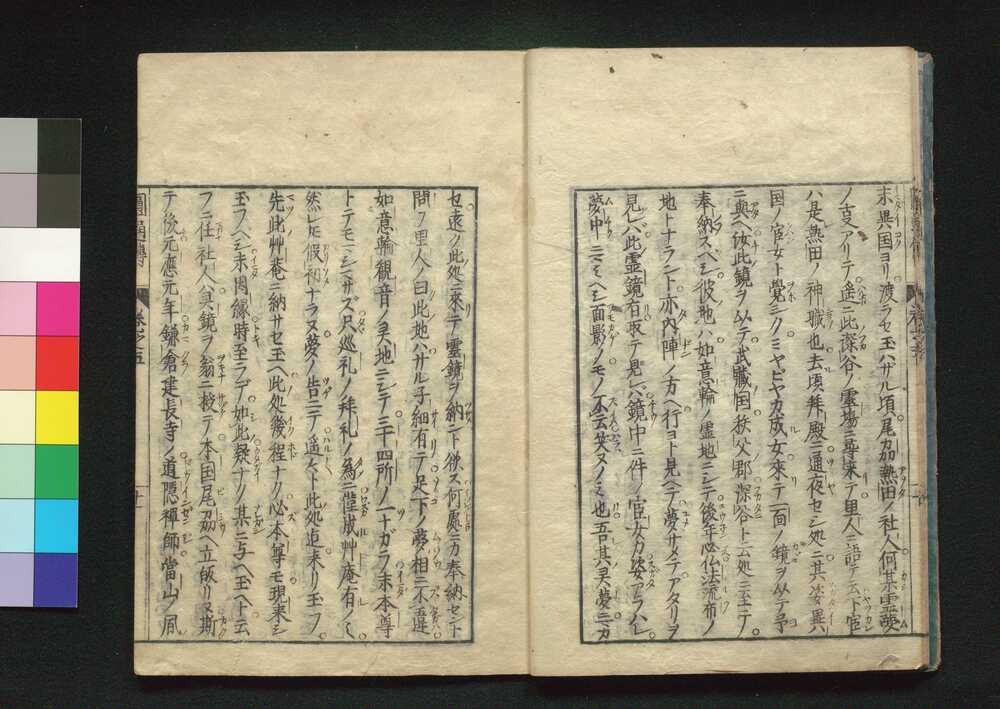 末異国ヨリ渡ラセ玉ハザル頃尾刕熱田ノ社人何某霊夢
ノ告アリテ遙ニ此深谷ノ霊場ニ尋来テ里人ニ語テ云下官
ハ是熱田ノ神職也去頃拜殿ニ通夜セシ処ニ其姿異
国ノ官女ト覚シクミヤビヤカ成女來テ一面ノ鏡ヲ以テ予
ニ與ヘ汝此鏡ヲ以テ武藏国秩父郡深谷ト云処ニ至テ
奉納スベシ彼地ハ如意輪ノ霊地ニシテ後年必仏法流布ノ
地トナラント亦内陣ノ方ヘ行ヨト見ヘテ夢サメテアタリヲ
見レバ此霊鏡有取テ見レバ鏡中ニ件ノ官女ガ姿アラハレ
夢中ニマミヘシ面影ノモノ不云笑ハヌノミ也吾其灵夢ニカ
セ遠ク此処ニ來テ霊鏡ヲ納ント欲ス何處ニカ奉納セント
問フ里人ノ曰此地ハサル子細有テ足下ノ夢相ニ不違
如意輪観音ノ灵地ニシテ三十四所ノ一ナガラ未本尊
トテモマシマサズ只巡礼ノ拜礼ノ為ニ營成艸庵有ノミ
然レ𪜈假初ナラヌ夢ノ告ニテ遙々ト此処迠来リ玉フ
先此艸菴ニ納サセ玉ヘ此処幾程ナク必本尊モ現来シ
玉フベシ未因縁時至ラデ如此疑ナク某ニ与ヘ玉ヘト云
フニ任社人
鏡ヲ翁ニ授テ本国尾刕ヘ立皈リ
斯
テ後元應元年鎌倉建長寺ノ道隠禅師當山ノ風
圓通傳
卷之五